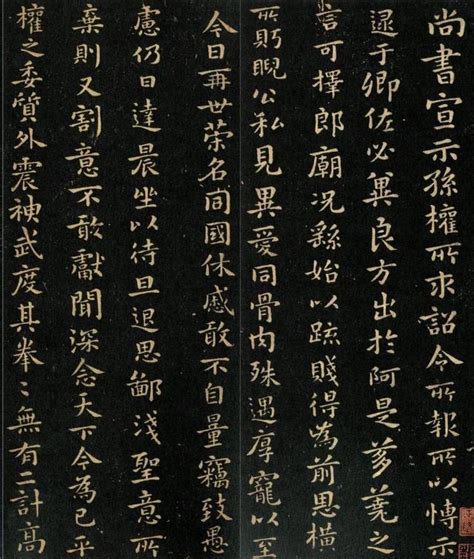 尚書宣示孫權所求詔令所報所以博示
逮于卿佐必冀良方出於阿是芻蕘之
言可擇郎廟況繇始以疏賤得為前恩橫
所眄睨公私見異愛同骨肉殊遇厚寵以至
今日再世榮名同國休慼敢不自量竊致愚
慮仍日達晨坐以待旦退思鄙淺聖意所
棄則又割意不敢獻聞深念天下今為已平
權之委質外震神武度其拳〻無有二計高